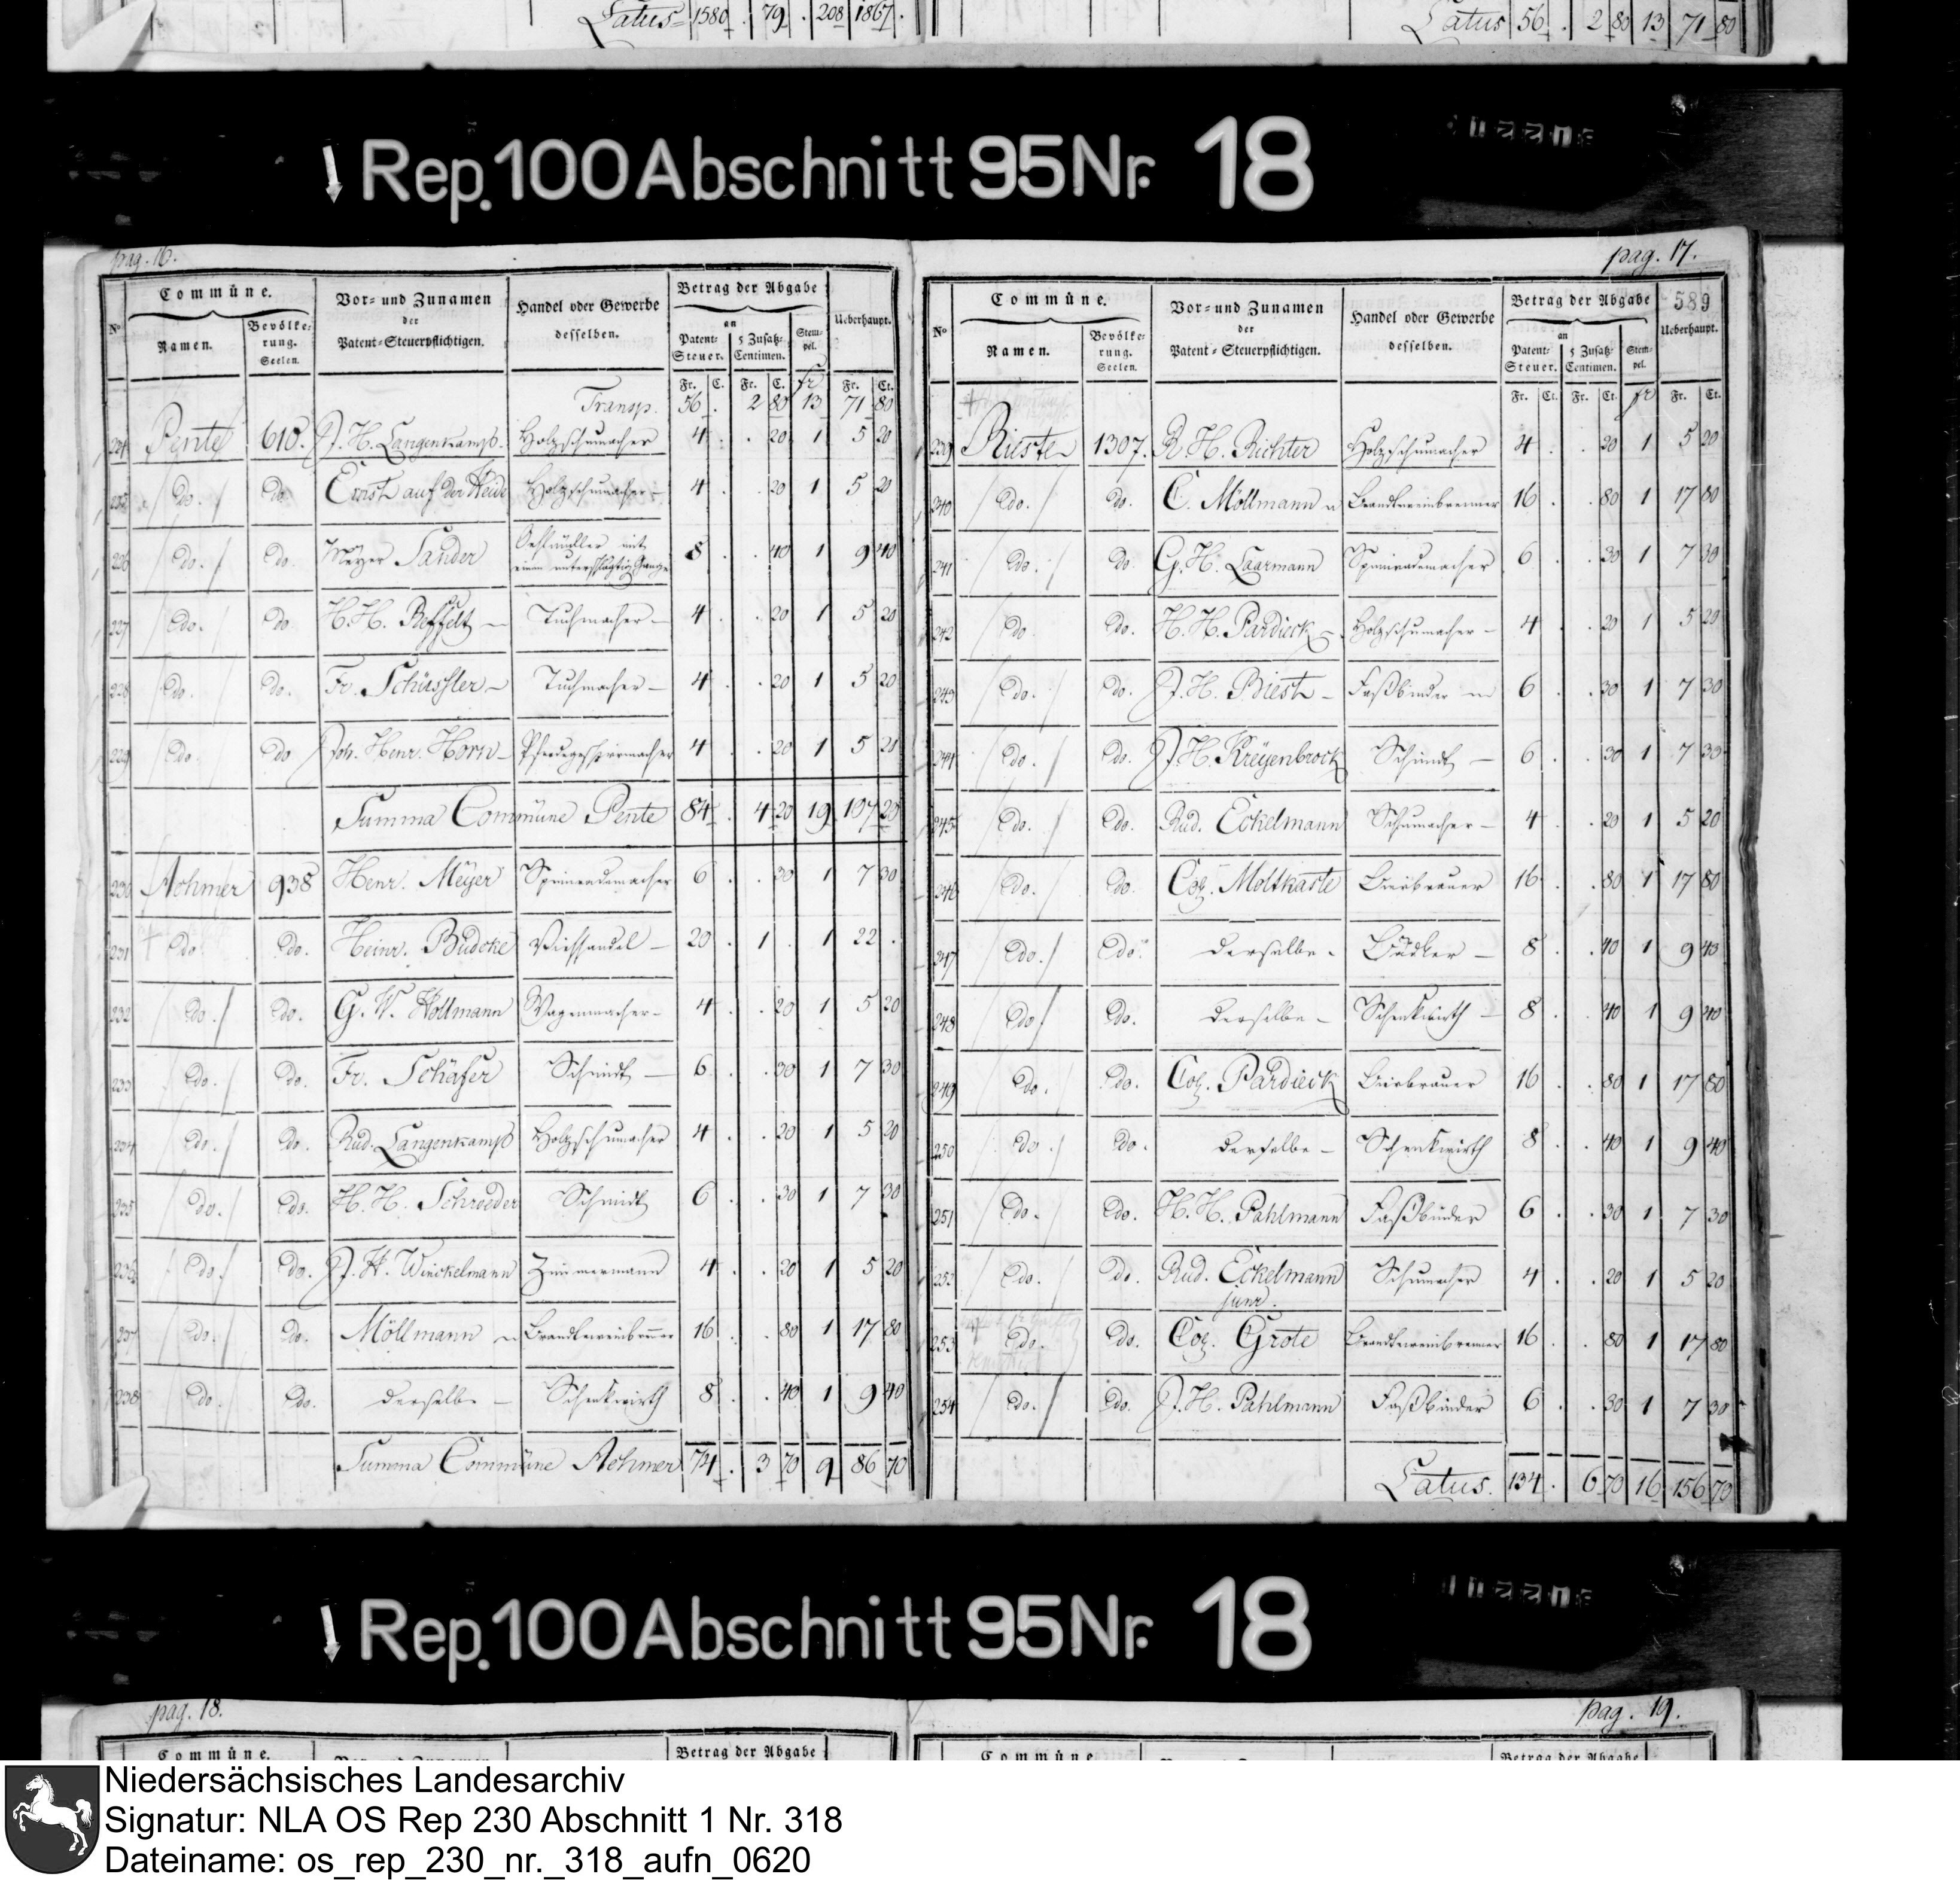 Latus 1580 . 79 . 208 1867 .
Latus 56 . 2 80 13 71 80
Rep. 100 Abschnitt 95 Nr. 18
pag. 16.
Commüne.
Vor- und Zunamen
der
Patent-Steuerpflichtigen.
Handel oder Gewerbe
desselben.
Betrag der Abgabe
an
Ueberhaupt.
No
Namen.
Bevölke-
rung.
Seelen.
Patent-
Steuer.
5 Zusatz-
Centimen.
Stem-
pel.
Fr. C. Fr. C. fr Fr. Ct.
Transp. 56 . 2 80 13 71 80
224 Pente 610. J. H. Langenkamp Holzschumacher 4 . . 20 1 5 20
225 do. do. Ernst auf der Heide Holzschumacher 4 . . 20 1 5 20
226 do. do. Meyer Sander Oehlmüller mit
einem unterschlägtig. Gange 8 . . 40 1 9 40
227 do. do. H. H. Beffelt Tuchmacher 4 . . 20 1 5 20
228 do. do. Fr. Schüssler Tuchmacher 4 . . 20 1 5 20
229 do. do Joh. Henr. Horn Pferdegeschirrmacher 4 . . 20 1 5 20
Summa Commüne Pente 84 . 4 20 19 107 20
230 Achmer 938 Henr. Meyer Spinnradmacher 6 . . 30 1 7 30
231 do. do. Heinr. Budcke Viehhandel 20 . 1 . 1 22 .
232 do. do. G. W. Holtmann Wagenmacher 4 . . 20 1 5 20
233 do. do. Fr. Schäfer Schmidt 6 . . 30 1 7 30
234 do. do. Rud. Langenkamp Holzschumacher 4 . . 20 1 5 20
235 do. do. H. H. Schroeder Schmidt 6 . . 30 1 7 30
236 do. do. J. H. Winckelmann Zimmermann 4 . . 20 1 5 20
237 do. do. Möllmann Brandtweinbrenner 16 . . 80 1 17 80
238 do. do. derselbe Schenkwirth 8 . . 40 1 9 40
Summa Commüne Achmer 74 . 3 70 9 86 70
pag. 17.
589
Commüne.
Vor- und Zunamen
der
Patent-Steuerpflichtigen.
Handel oder Gewerbe
desselben.
Betrag der Abgabe
an
Ueberhaupt.
No
Namen.
Bevölke-
rung.
Seelen.
Patent-
Steuer.
5 Zusatz-
Centimen.
Stem-
pel.
Fr. Ct. Fr. Ct. fr Fr. Ct.
239 Rieste 1307. R. H. Richter Holzschumacher 4 . . 20 1 5 20
240 do. do. C. Möllmann Brandtweinbrenner 16 . . 80 1 17 80
241 do. do. G. H. Laarmann Spinnradmacher 6 . . 30 1 7 30
242 do. do. H. H. Pardieck Holzschumacher 4 . . 20 1 5 20
243 do. do. J. H. Biest Faßbinder 6 . . 30 1 7 30
244 do. do. J. H. Kreyenbrock Schmidt 6 . . 30 1 7 30
245 do. do. Rud. Eckelmann Schumacher 4 . . 20 1 5 20
246 do. do. Col. Moltkaste Bierbrauer 16 . . 80 1 17 80
247 do. do. derselbe 8 . . 40 1 9 40
248 do. do. derselbe Schenkwirth 8 . . 40 1 9 40
249 do. do. Col. Pardieck Bierbrauer 16 . . 80 1 17 80
250 do. do. derselbe Schenkwirth 8 . . 40 1 9 40
251 do. do. H. H. Pahlmann Faßbinder 6 . . 30 1 7 30
252 do. do. Rud. Eckelmann
junr. Schumacher 4 . . 20 1 5 20
253 do. do. Col. Grote Brandtweinbrenner 16 . . 80 1 17 80
254 do. do. J. H. Pahlmann Faßbinder 6 . . 30 1 7 30
Latus. 134 . 6 70 16 156 70
Rep. 100 Abschnitt 95 Nr. 18
pag. 18.
pag. 19.
Commüne.
Betrag der Abgabe
Commüne
Betrag der Abgabe
Niedersächsisches Landesarchiv
Signatur: NLA OS Rep 230 Abschnitt 1 Nr. 318
Dateiname: os_rep_230_nr._318_aufn_0620